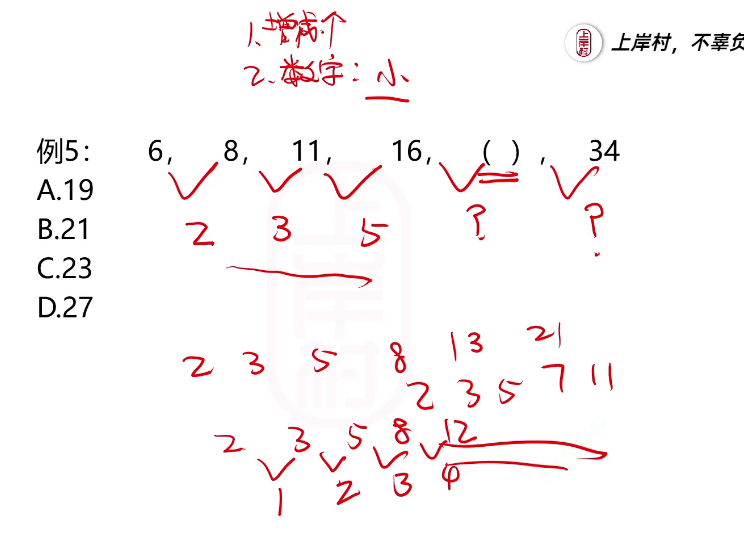 1.增减个
2.数字：小
上岸村，不辜负
例5： 6， 8， 11， 16， （ ）， 34
A.19
B.21
C.23
D.27
2 3 5 ? ?
2 3 5 8 13 21
2 3 5 7 11
2 3 5 8 12
1 2 3 4
上岸村